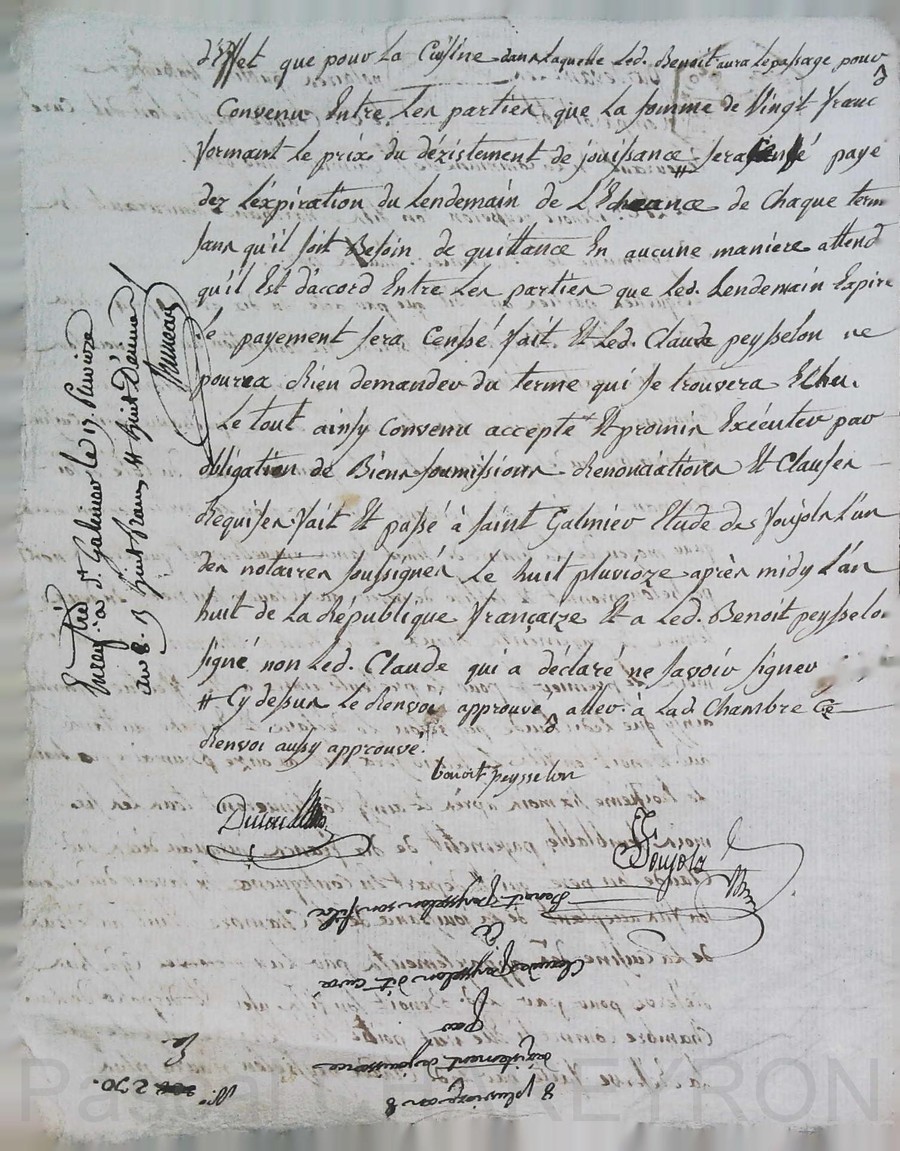 d'Effet que pour La Cuisine dans laquelle Led. Benoit aura le passage pour
Convenu Entre Les parties que La somme de Vingt franc
formant Le prix du dézistement de jouissance # sera paye
dez L'éxpiration du Lendemain de L'Echeance de Chaque term
sans qu'il soit Besoin de quittance En aucune maniere attend
qu'il Est d'accord Entre Les parties que Led. Lendemain Expire
Le payement sera Censsé fait. Et Led. Claude peysselon ne
pourra Rien demander du terme qui se trouvera Echu.
Le tout ainsy Convenu accepté Et promis Exécuter par
obligation de Biens soumissions Renonciations Et Clauses
Requises fait Et passé à saint Galmier Etude de foujols L'un
des notaires soussignés Le huit pluvioze après midy L'an
huit de La République françaize Et a Led. Benoit peysselo.
signé non Led. Claude qui a déclaré ne savoir signer
# Cy dessus Le Renvoi approuvé, aller à Lad. Chambre Ce
Renvoi aussy approuvé.
benoit peysselon
foujols
Enregistré à St. Galmier le 17 Pluvioze
an 8. R huit francs Et huit Décimes
8 pluvioze an 8
dézistement de jouissance
par
Claude peysselon dit cura
à
Benoit peysselon son fils
N° 270.